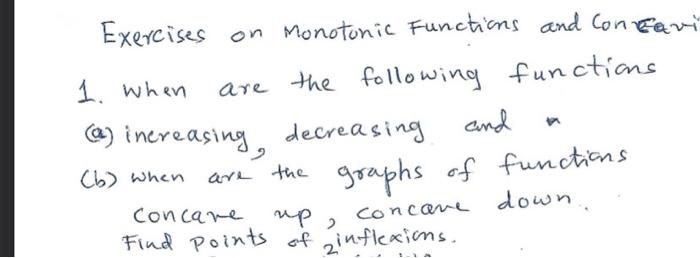 Exercises on Monotonic Functions and Concavi
1. When are the following functions
(a) increasing, decreasing and
(b) when are the graphs of functions
concave up, concave down.
Find points of inflexions.